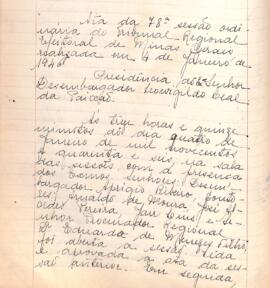 Ata da 78ª sessão ordi-
nária do Tribunal Regional
Eleitoral de Minas Gerais
realizada em 4 de janeiro de
1946
Presidência do Senhor
Desembargador Leovigildo Leal
da Paixão.
Às treze horas e quinze
minutos do dia quatro de
janeiro de mil novecentos
e quarenta e seis, na sala
das sessões com a presença
dos Exmos. senhores Desem-
bargador Aprigio Ribeiro
Arnaldo de Moura José
Pereira,
nhor Procurador Regional
Dr Eduardo de Menezes Filho,
foi aberta a sessão. Lida
e aprovada a ata da ses-
são anterior. Em seguida,